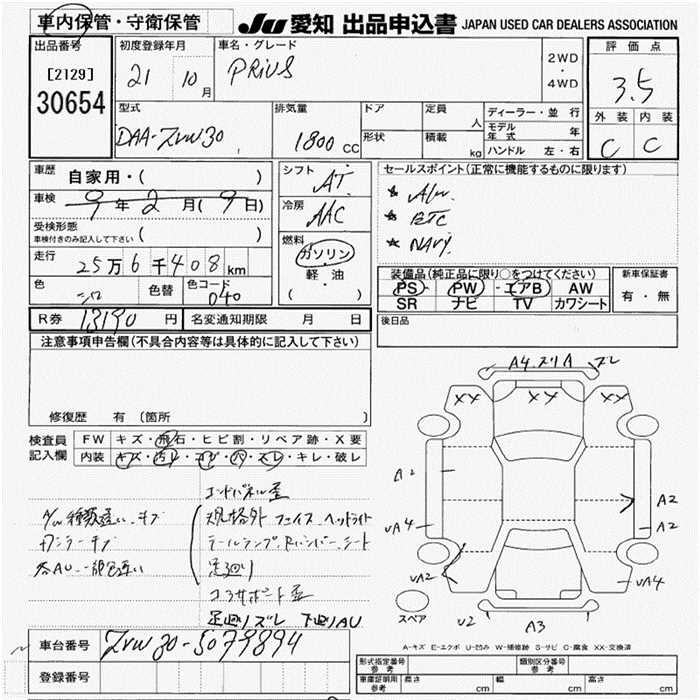 車内保管・守衛保管
Ju 愛知 出品申込書 JAPAN USED CAR DEALERS ASSOCIATION
出品番号
[2129]
30654
初度登録年月
21 10 月
車名・グレード
PRiUS
2WD
・
4WD
評価点
3.5
外装 内装
C C
型式
DAA-ZVW30
排気量
1800 CC
ドア
形状
定員 人
積載 kg
ディーラー・並行
モデル年式 年
ハンドル 左・右
車歴 自家用・( )
車検 9年 2月(9日)
受検形態
車検付きのみ記入して下さい ( )
走行 25万6千408km
色 シロ 色替 色コード 040
シフト AT
冷房 AAC
燃料
ガソリン
軽・油
( )
セールスポイント(正常に機能するものに限ります)
★ A/w.
★ ETC
★ NAVi.
装備品(純正品に限り○をつけてください)
PS・PW・エアB・AW
SR ナビ TV カワシート
新車保証書
有・無
R券 13190 円 名変通知期限 月 日
後日品
注意事項申告欄(不具合内容等は具体的に記入して下さい)
修復歴 有(箇所 )
検査員記入欄
FW キズ・飛石・ヒビ割・リペア跡・X要
内装 キズ・汚レ・コゲ・穴・スレ・キレ・破レ
A/w種類違い、キズ
規格外 フェイス、ヘッドライト
テールランプ、Rバンパー、シート
足廻り
コアサポート歪
足廻りズレ 下廻りAU
A4.スリA ズレ
XX XX XX
A2
A2
A2
UA4
UA2
UA4
U2
A3
スペア
A-キズ E-エクボ U-凹み W-補修跡 S-サビ C-腐食 XX-交換済
車台番号 ZVW30-5079894
登録番号
形式指定番号 参考
類別区分番号 参考
車庫証明用 参考 長さ cm 幅 cm 高さ cm